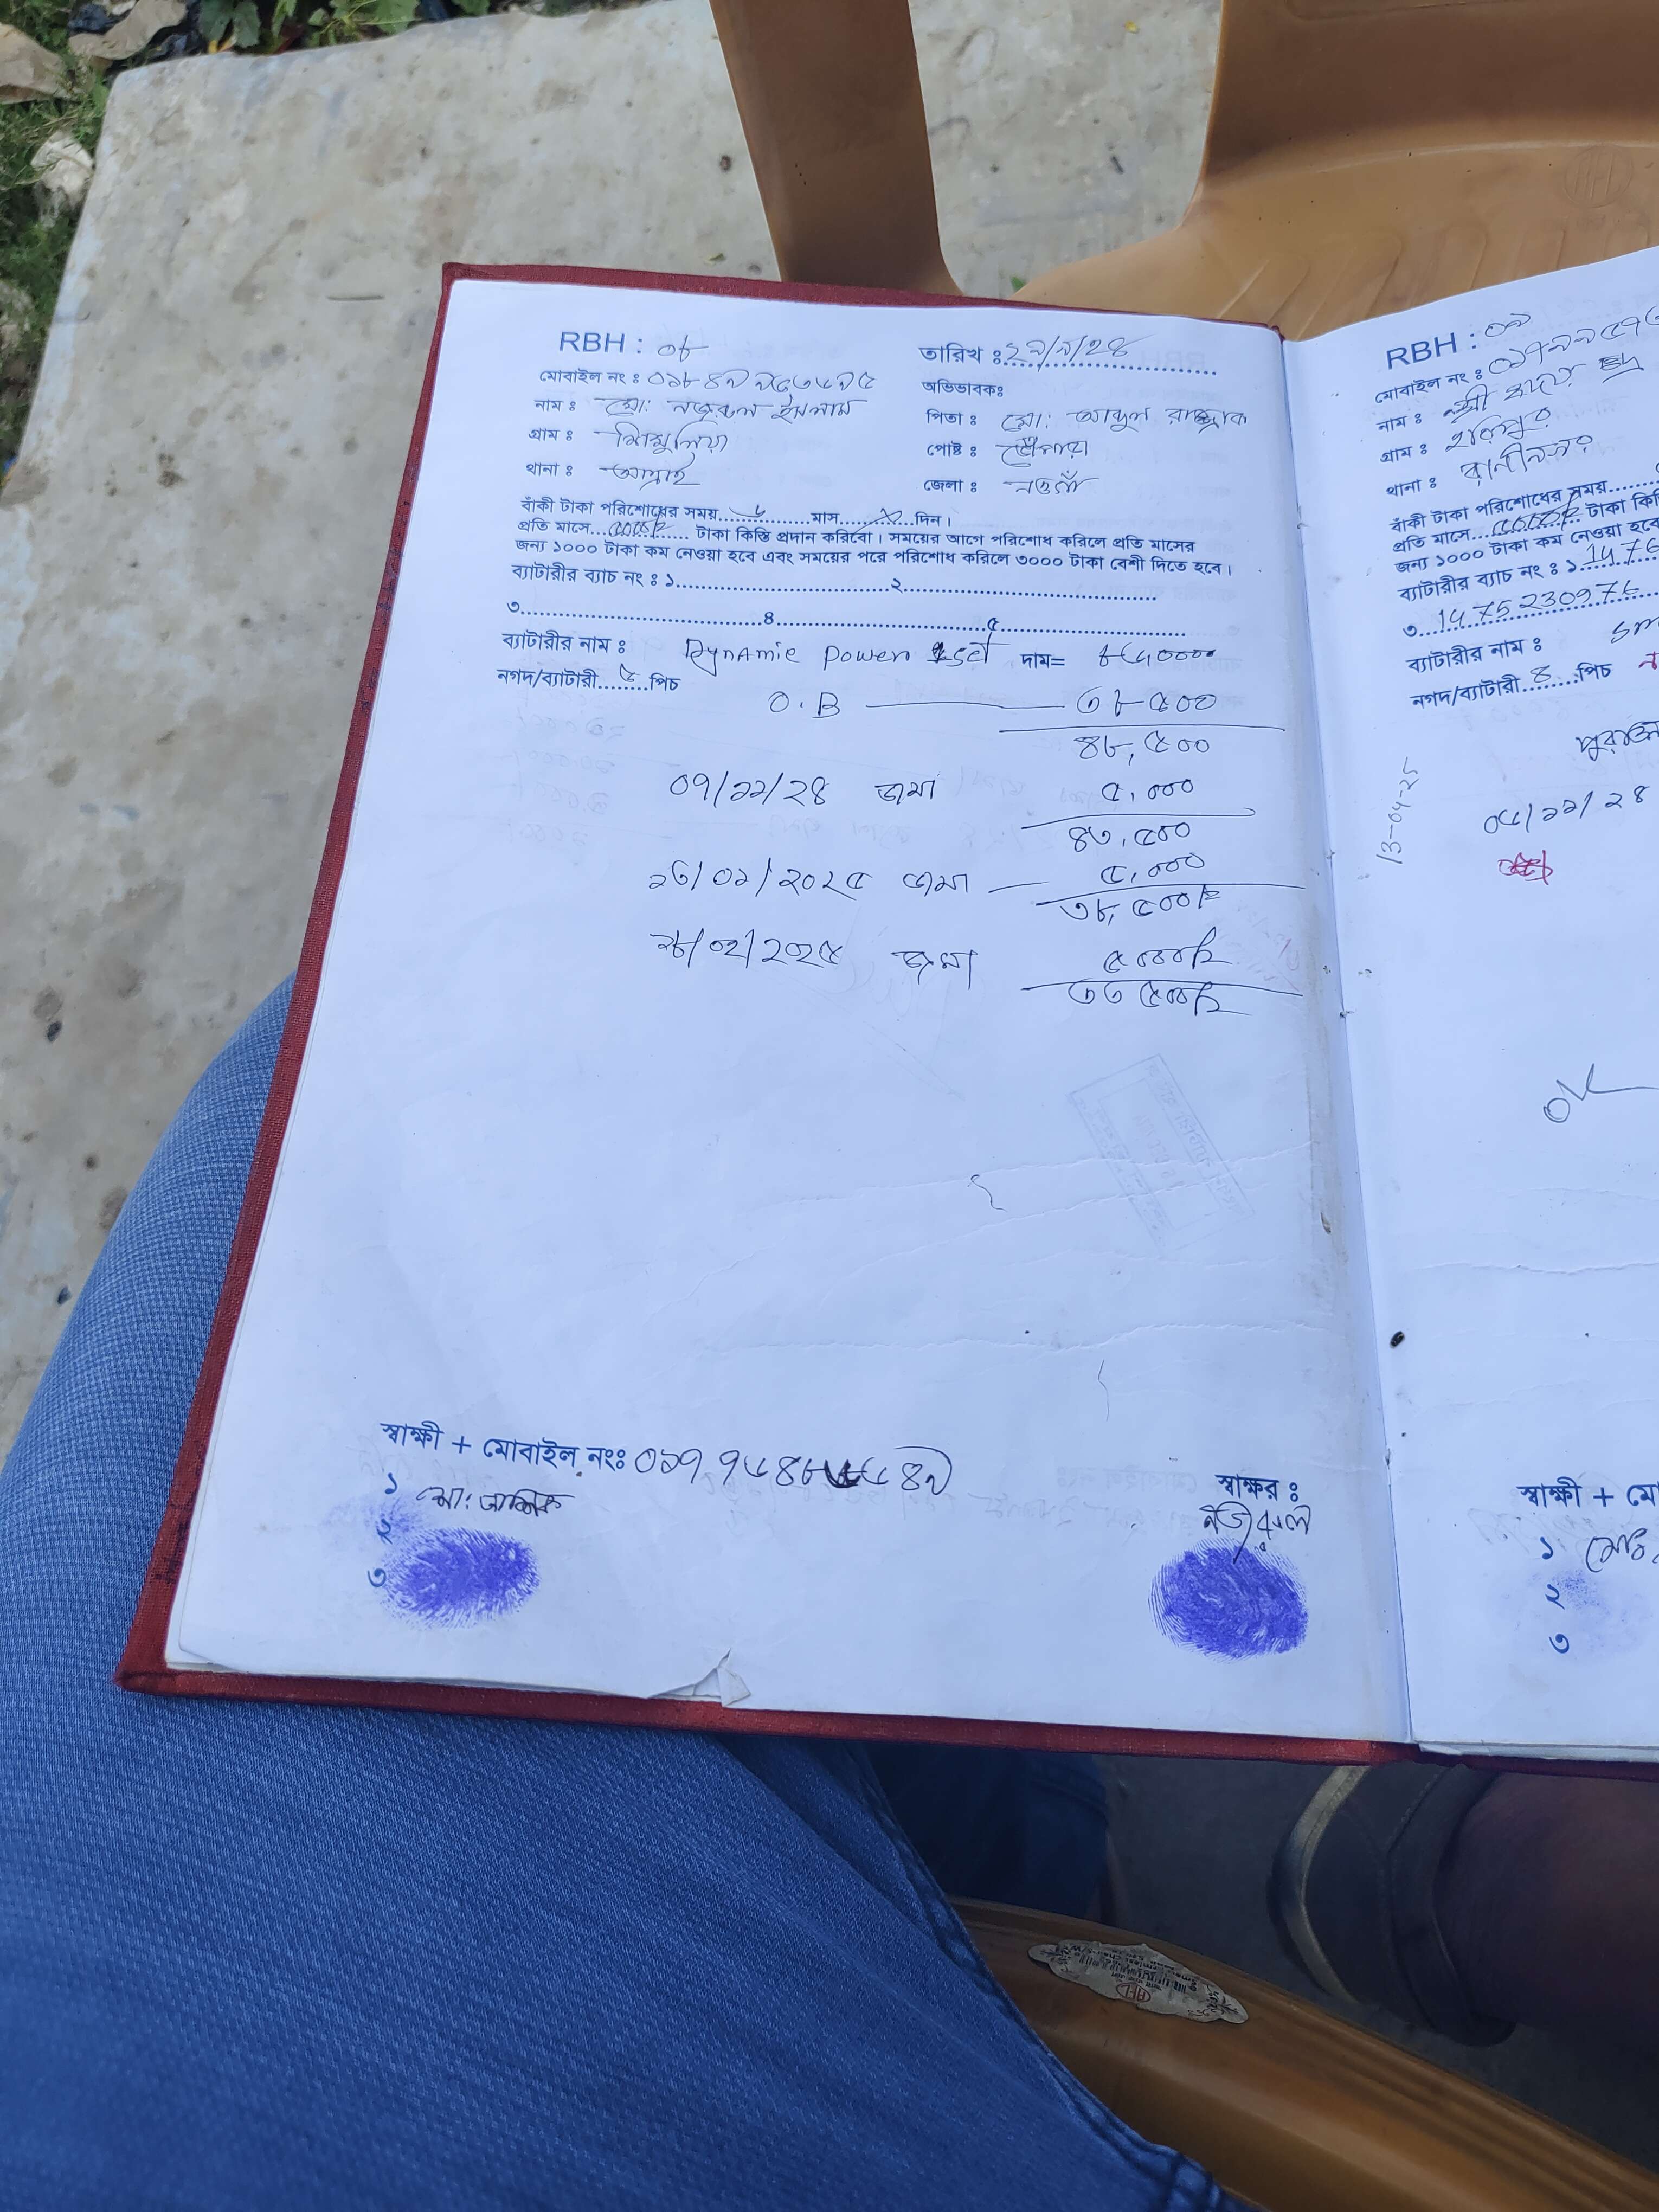 RBH : ০৮
তারিখ : ২৯/৯/২৪
মোবাইল নং : ০১৮৪৯৯৫৩৬৯৫
অভিভাবকঃ
নাম : মো: নজরুল ইসলাম
পিতা : মো: আব্দুল রাজ্জাক
গ্রাম : শিমুলিয়া
পোষ্ট :
থানা : আত্রাই
জেলা : নওগাঁ
বাঁকী টাকা পরিশোধের সময়....৬....মাস....×....দিন।
প্রতি মাসে....৫০০০/=.... টাকা কিস্তি প্রদান করিবো। সময়ের আগে পরিশোধ করিলে প্রতি মাসের
জন্য ১০০০ টাকা কম নেওয়া হবে এবং সময়ের পরে পরিশোধ করিলে ৩০০০ টাকা বেশী দিতে হবে।
ব্যাটারীর ব্যাচ নং : ১....................২....................
৩....................৪....................৫....................
ব্যাটারীর নাম : Dynamic Power 1set দাম=
নগদ/ব্যাটারী....৫....পিচ
O.B ৩৮৫০০
৪৮,৫০০
০৭/১১/২৪ জমা ৫,০০০
৪৩,৫০০
১৩/০১/২০২৫ জমা ৫,০০০
৩৮,৫০০/=
/০২/২০২৫ জমা ৫০০০/=
৩৩৫০০/=
স্বাক্ষী + মোবাইল নংঃ
১ মো:
২
৩
স্বাক্ষর :
নজরুল
RBH : ০৯
মোবাইল নং :
নাম : শ্রী
গ্রাম : হরিপুর
থানা : রানীনগর
বাঁকী টাকা পরিশোধের সময়......
প্রতি মাসে....৫০০০/=.... টাকা কি
জন্য ১০০০ টাকা কম নেওয়া হবে
ব্যাটারীর ব্যাচ নং : ১ 1476
৩ 1475230976
ব্যাটারীর নাম : Sm
নগদ/ব্যাটারী....৪....পিচ
13-04-25
০৫/১১/২৪
OK
স্বাক্ষী + মো
১
২
৩